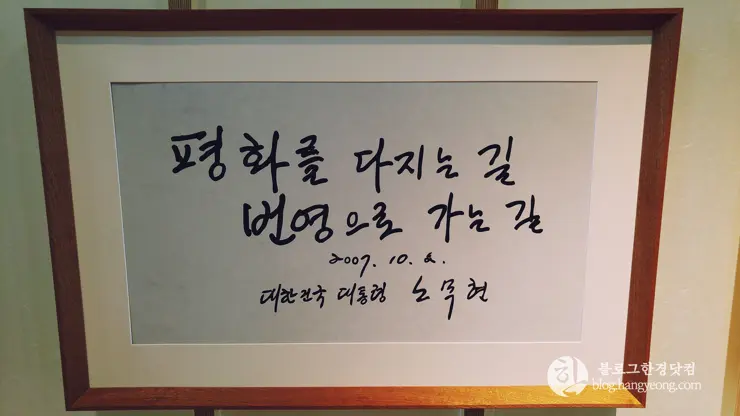 평화를 다지는 길
번영으로 가는 길
2007. 10. 2.
대한민국 대통령 노무현
블로그한경닷컴
blog.hangyeong.com